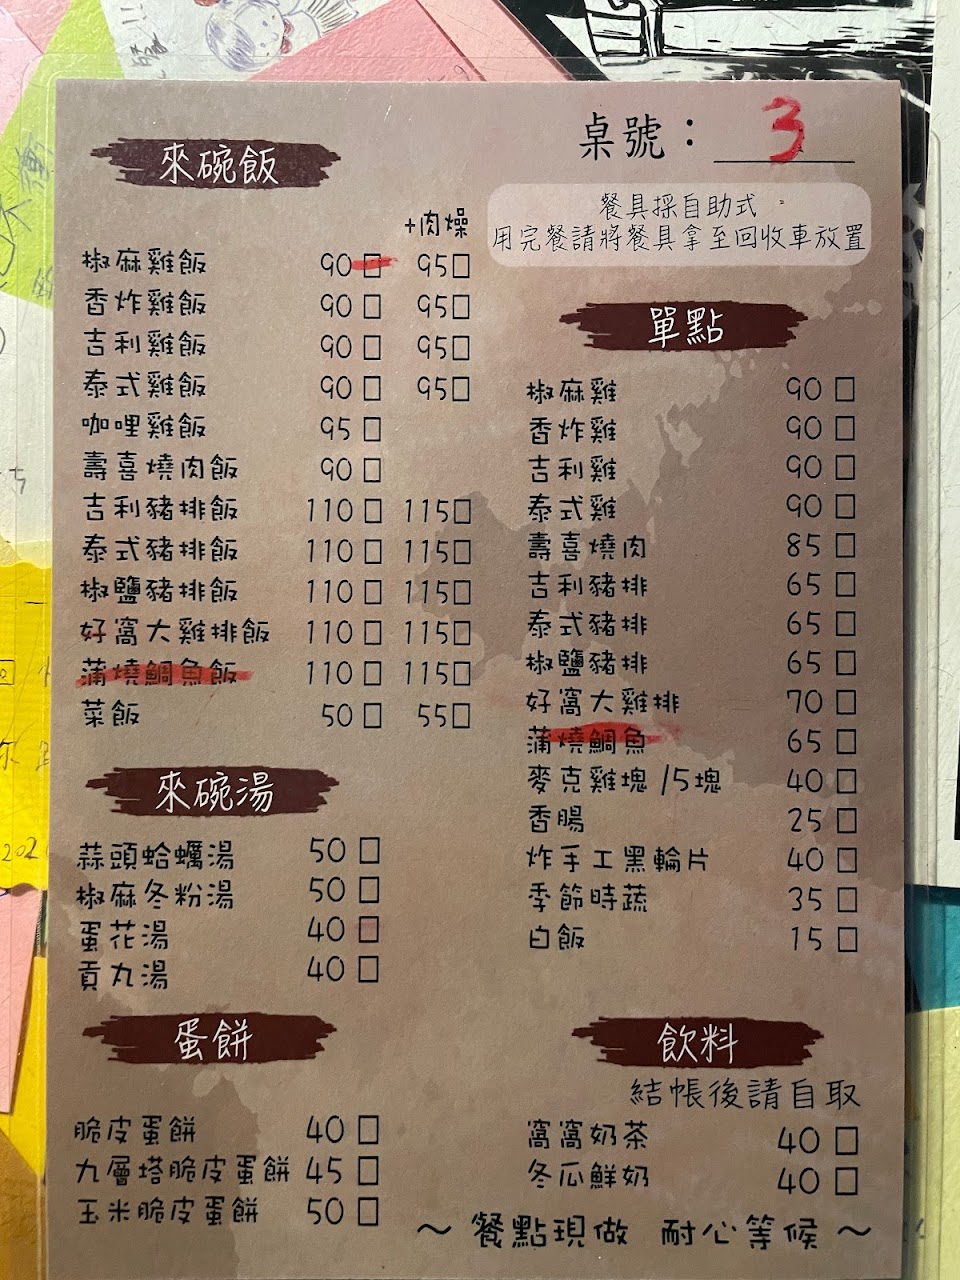 桌號：3
餐具採自助式
用完餐請將餐具拿至回收車放置
來碗飯
+肉燥
椒麻雞飯 90□ 95□
香炸雞飯 90□ 95□
吉利雞飯 90□ 95□
泰式雞飯 90□ 95□
咖哩雞飯 95□
壽喜燒肉飯 90□
吉利豬排飯 110□ 115□
泰式豬排飯 110□ 115□
椒鹽豬排飯 110□ 115□
好窩大雞排飯 110□ 115□
蒲燒鯛魚飯 110□ 115□
菜飯 50□ 55□
來碗湯
蒜頭蛤蠣湯 50□
椒麻冬粉湯 50□
蛋花湯 40□
貢丸湯 40□
蛋餅
脆皮蛋餅 40□
九層塔脆皮蛋餅 45□
玉米脆皮蛋餅 50□
單點
椒麻雞 90□
香炸雞 90□
吉利雞 90□
泰式雞 90□
壽喜燒肉 85□
吉利豬排 65□
泰式豬排 65□
椒鹽豬排 65□
好窩大雞排 70□
蒲燒鯛魚 65□
麥克雞塊/5塊 40□
香腸 25□
炸手工黑輪片 40□
季節時蔬 35□
白飯 15□
飲料
結帳後請自取
窩窩奶茶 40□
冬瓜鮮奶 40□
～餐點現做 耐心等候～